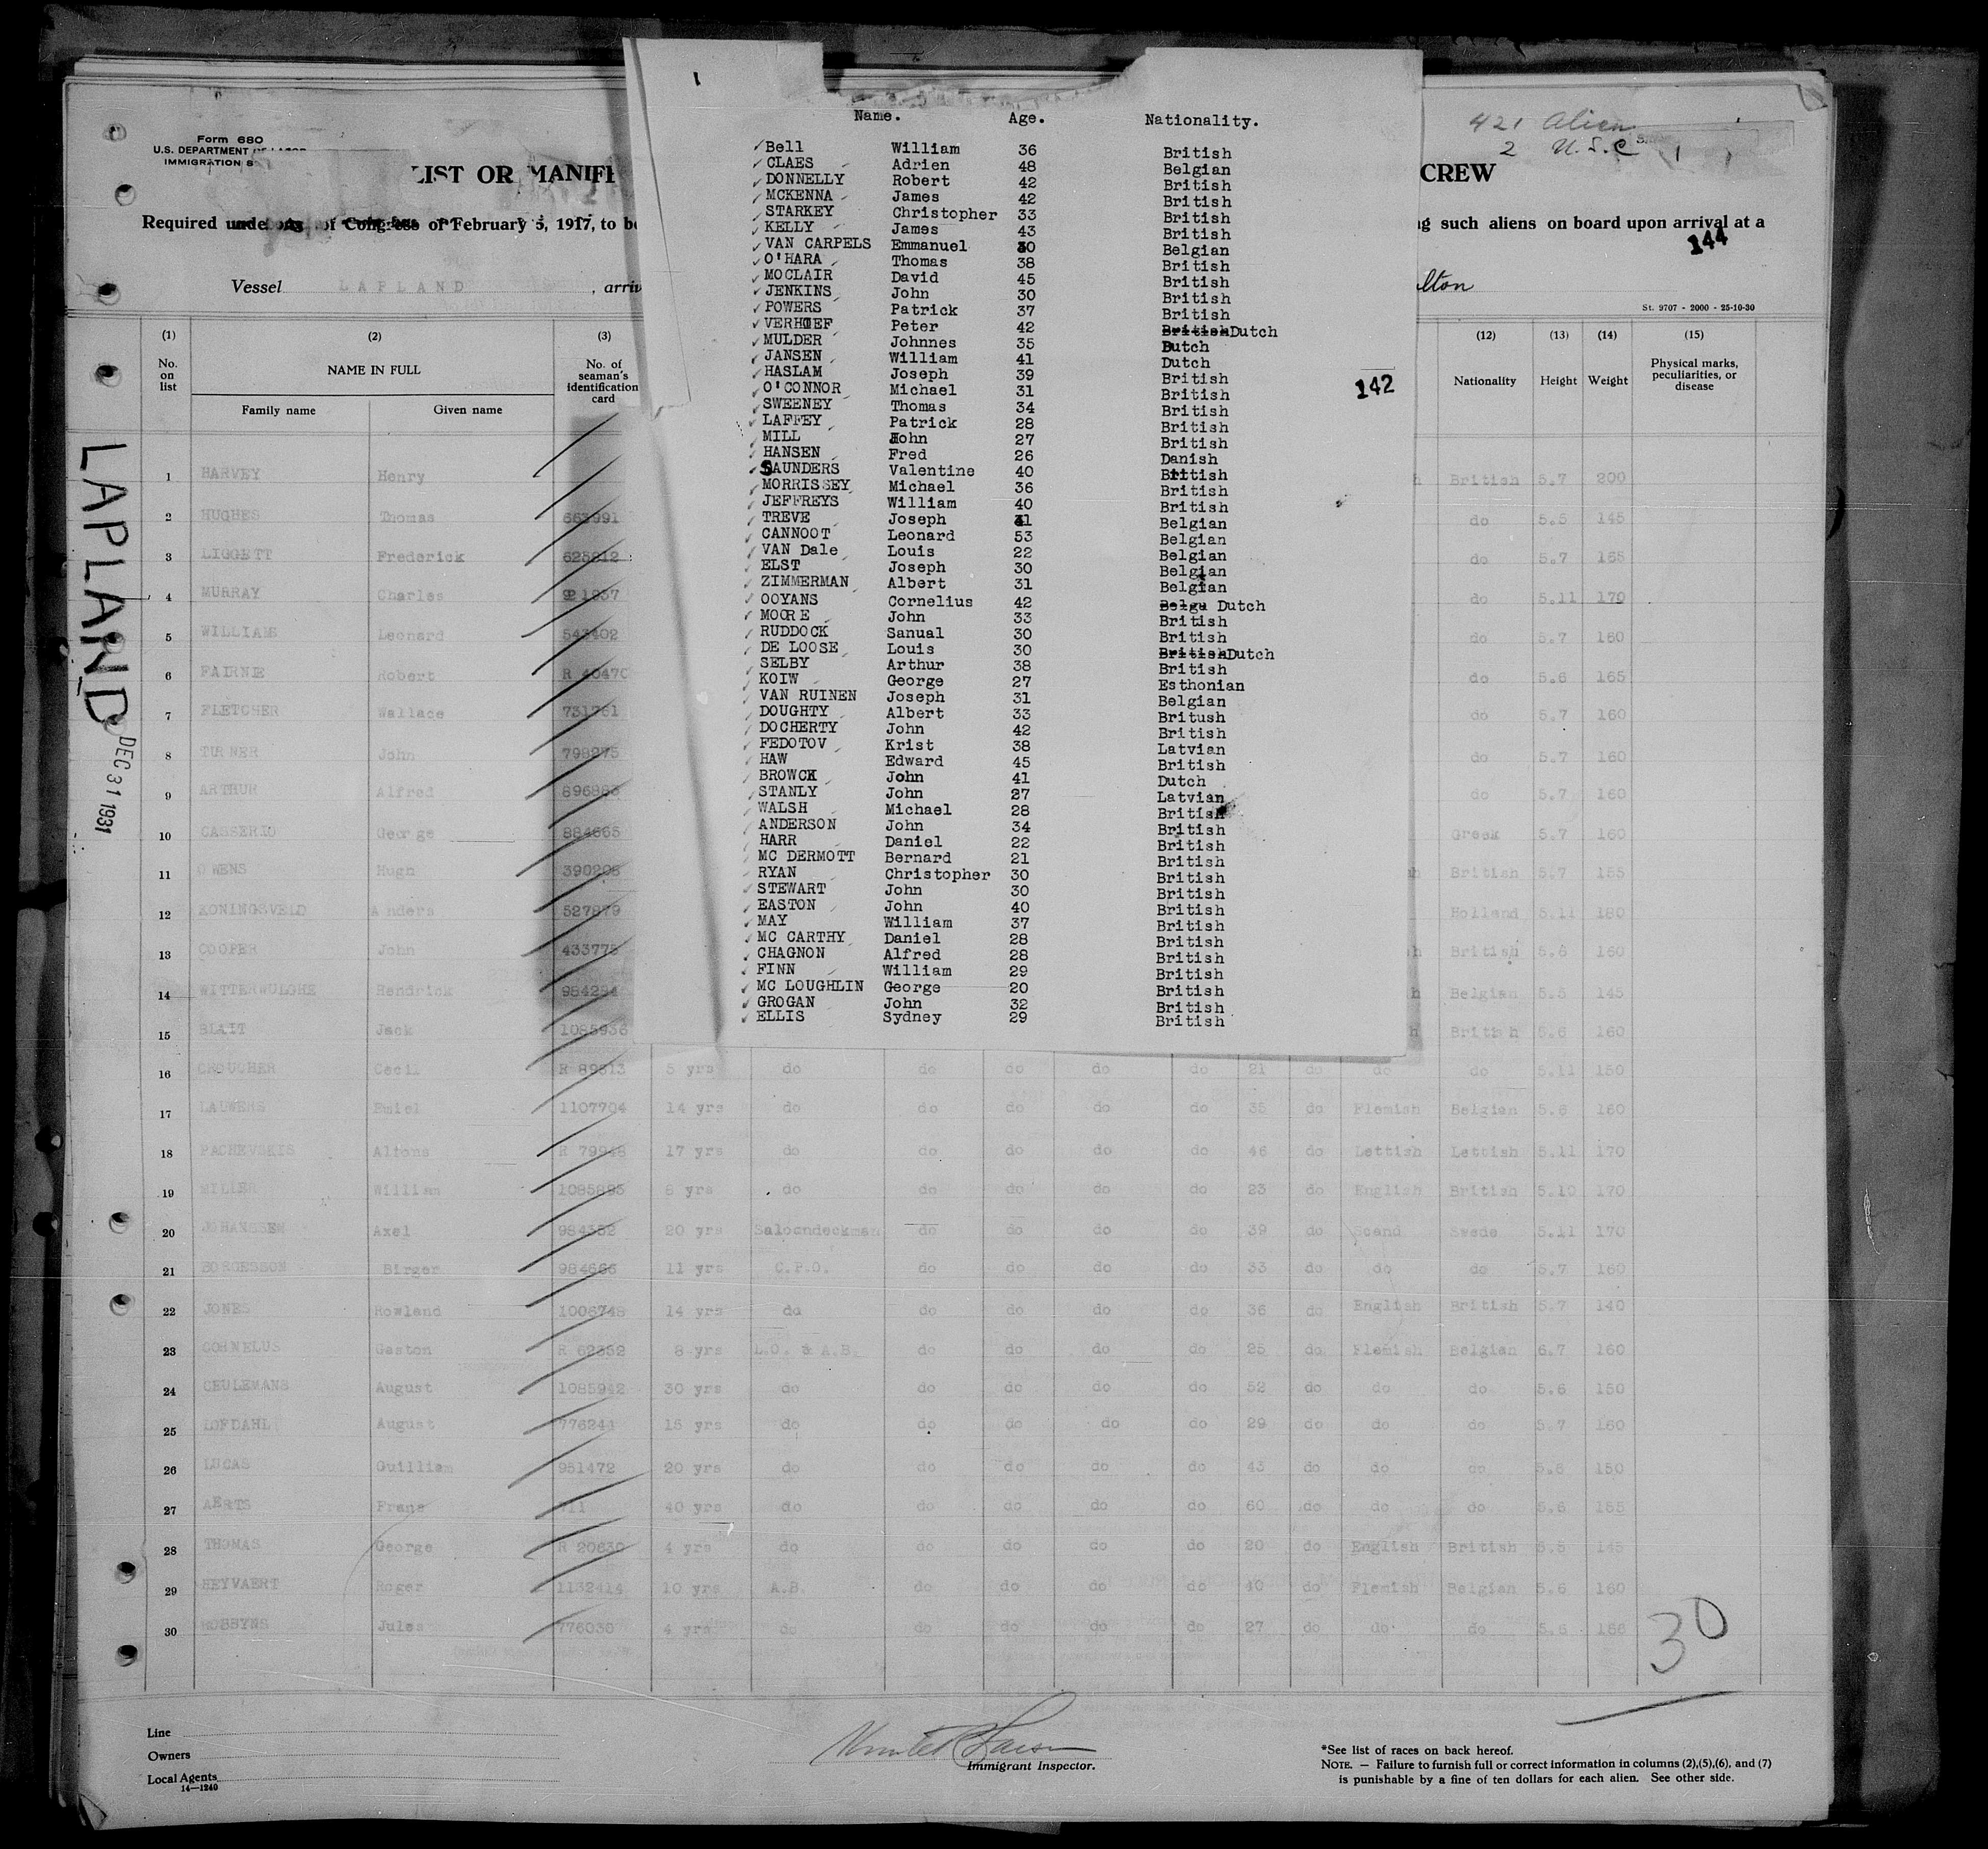 Form 680
U.S. DEPARTMENT OF LABOR
IMMIGRATION S
LIST OR MANIFE
CREW
421 Alien
2 U.S.C
Required under Act of Congress of February 5, 1917, to be
ng such aliens on board upon arrival at a
144
Vessel LAPLAND , arriv
lton
St. 9707 - 2000 - 25-10-30
1
Name. Age. Nationality.
Bell William 36 British
CLAES Adrien 48 Belgian
DONNELLY Robert 42 British
MCKENNA James 42 British
STARKEY Christopher 33 British
KELLY James 43 British
VAN CARPELS Emmanuel 30 Belgian
O'HARA Thomas 38 British
MOCLAIR David 45 British
JENKINS John 30 British
POWERS Patrick 37 British
VERHOEF Peter 42 British Dutch
MULDER Johnnes 35 Dutch
JANSEN William 41 Dutch
HASLAM Joseph 39 British
O'CONNOR Michael 31 British
SWEENEY Thomas 34 British
LAFFEY Patrick 28 British
MILL John 27 British
HANSEN Fred 26 Danish
SAUNDERS Valentine 40 British
MORRISSEY Michael 36 British
JEFFREYS William 40 British
TREVE Joseph 41 Belgian
CANNOOT Leonard 53 Belgian
VAN Dale Louis 22 Belgian
ELST Joseph 30 Belgian
ZIMMERMAN Albert 31 Belgian
OOYANS Cornelius 42 Belgu Dutch
MOORE John 33 British
RUDDOCK Sanual 30 British
DE LOOSE Louis 30 British Dutch
SELBY Arthur 38 British
KOIW George 27 Esthonian
VAN RUINEN Joseph 31 Belgian
DOUGHTY Albert 33 Britush
DOCHERTY John 42 British
FEDOTOV Krist 38 Latvian
HAW Edward 45 British
BROWCK John 41 Dutch
STANLY John 27 Latvian
WALSH Michael 28 British
ANDERSON John 34 British
HARR Daniel 22 British
MC DERMOTT Bernard 21 British
RYAN Christopher 30 British
STEWART John 30 British
EASTON John 40 British
MAY William 37 British
MC CARTHY Daniel 28 British
CHAGNON Alfred 28 British
FINN William 29 British
MC LOUGHLIN George 20 British
GROGAN John 32 British
ELLIS Sydney 29 British
142
LAPLAND
DEC 31 1931
(1) (2) (3) (12) (13) (14) (15)
No. on list
NAME IN FULL
Family name Given name
No. of seaman's identification card
Nationality Height Weight
Physical marks, peculiarities, or disease
1 HARVEY Henry British 5.7 200
2 HUGHES Thomas 663991 do 5.5 145
3 LIGGETT Frederick 625812 do 5.7 165
4 MURRAY Charles 921937 do 5.11 170
5 WILLIAMS Leonard 543402 do 5.7 160
6 FAIRNIE Robert R 40470 do 5.6 165
7 FLETCHER Wallace 731761 do 5.7 160
8 TURNER John 798275 do 5.7 160
9 ARTHUR Alfred 896863 do 5.7 160
10 CASSERIO George 884665 Greek 5.7 160
11 OWENS Hugh 390208 British 5.7 155
12 KONINGSVELD Anders 527879 Holland 5.11 180
13 COOPER John 433775 British 5.6 160
14 WITTERWULGHE Hendrick 984294 Belgian 5.5 145
15 BLAIT Jack 1085936 British 5.6 160
16 CROUCHER Cecil R 89513 5 yrs do do do do do 21 do do do 5.11 150
17 LAUWERS Emiel 1107704 14 yrs do do do do do 35 do Flemish Belgian 5.6 160
18 PACHEVSKIS Alfons R 79948 17 yrs do do do do do 46 do Lettish Lettish 5.11 170
19 MILLER William 1085895 6 yrs do do do do do 23 do English British 5.10 170
20 JOHANSSEN Axel 984352 20 yrs Saloondeckman do do do do 39 do Scand Swede 5.11 170
21 BORGESSON Birger 984666 11 yrs C.P.O. do do do do 33 do do do 5.7 160
22 JONES Rowland 1006748 14 yrs do do do do do 36 do English British 5.7 140
23 CORNELUS Gaston R 62352 8 yrs L.O. & A.B. do do do do 25 do Flemish Belgian 6.7 160
24 CEULEMANS August 1085942 30 yrs do do do do do 52 do do do 5.6 150
25 LOFDAHL August 776244 15 yrs do do do do do 29 do do do 5.7 160
26 LUCAS Guilliam 951472 20 yrs do do do do do 43 do do do 5.6 150
27 AERTS Frans 711 40 yrs do do do do do 60 do do do 5.6 155
28 THOMAS George R 20630 4 yrs do do do do do 20 do English British 5.5 145
29 HEYVAERT Roger 1132414 10 yrs A.B. do do do do 40 do Flemish Belgian 5.6 160
30 ROBBYNS Jules 776030 4 yrs do do do do do 27 do do do 5.6 156
30
Line
Owners
Local Agents
14—1240
Immigrant Inspector.
*See list of races on back hereof.
NOTE. — Failure to furnish full or correct information in columns (2),(5),(6), and (7)
is punishable by a fine of ten dollars for each alien. See other side.